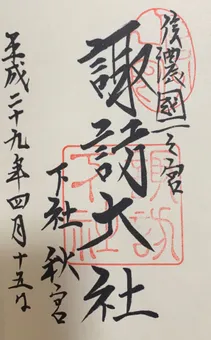 信濃國一之宮
諏訪大社
下社秋宮
平成二十九年四月十五日